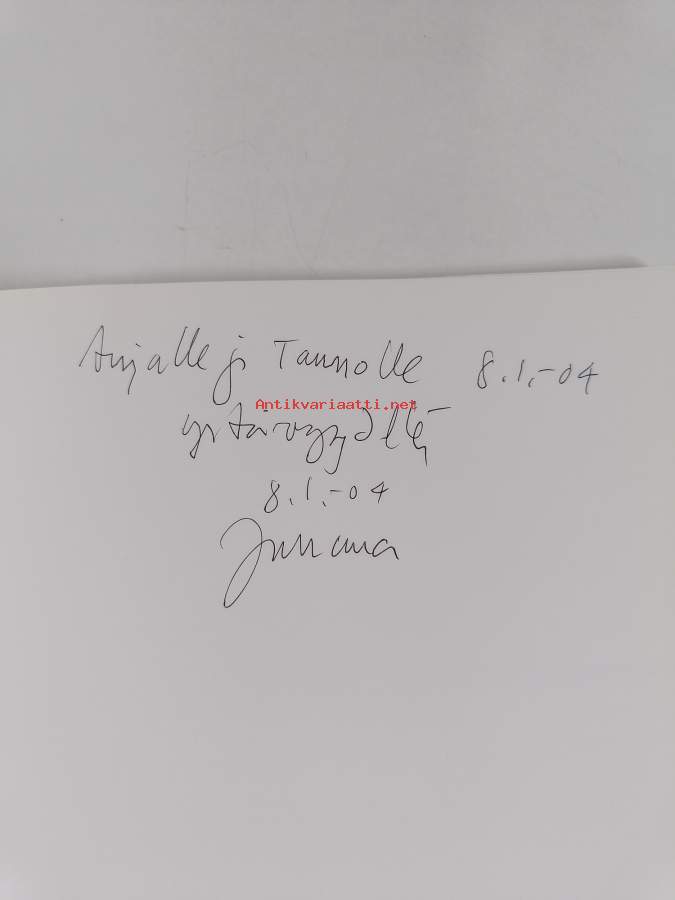 Anjalle ja Taunolle 8.1.-04
Antikvariaatti.net
ystävyydellä
8.1.-04
Juhana